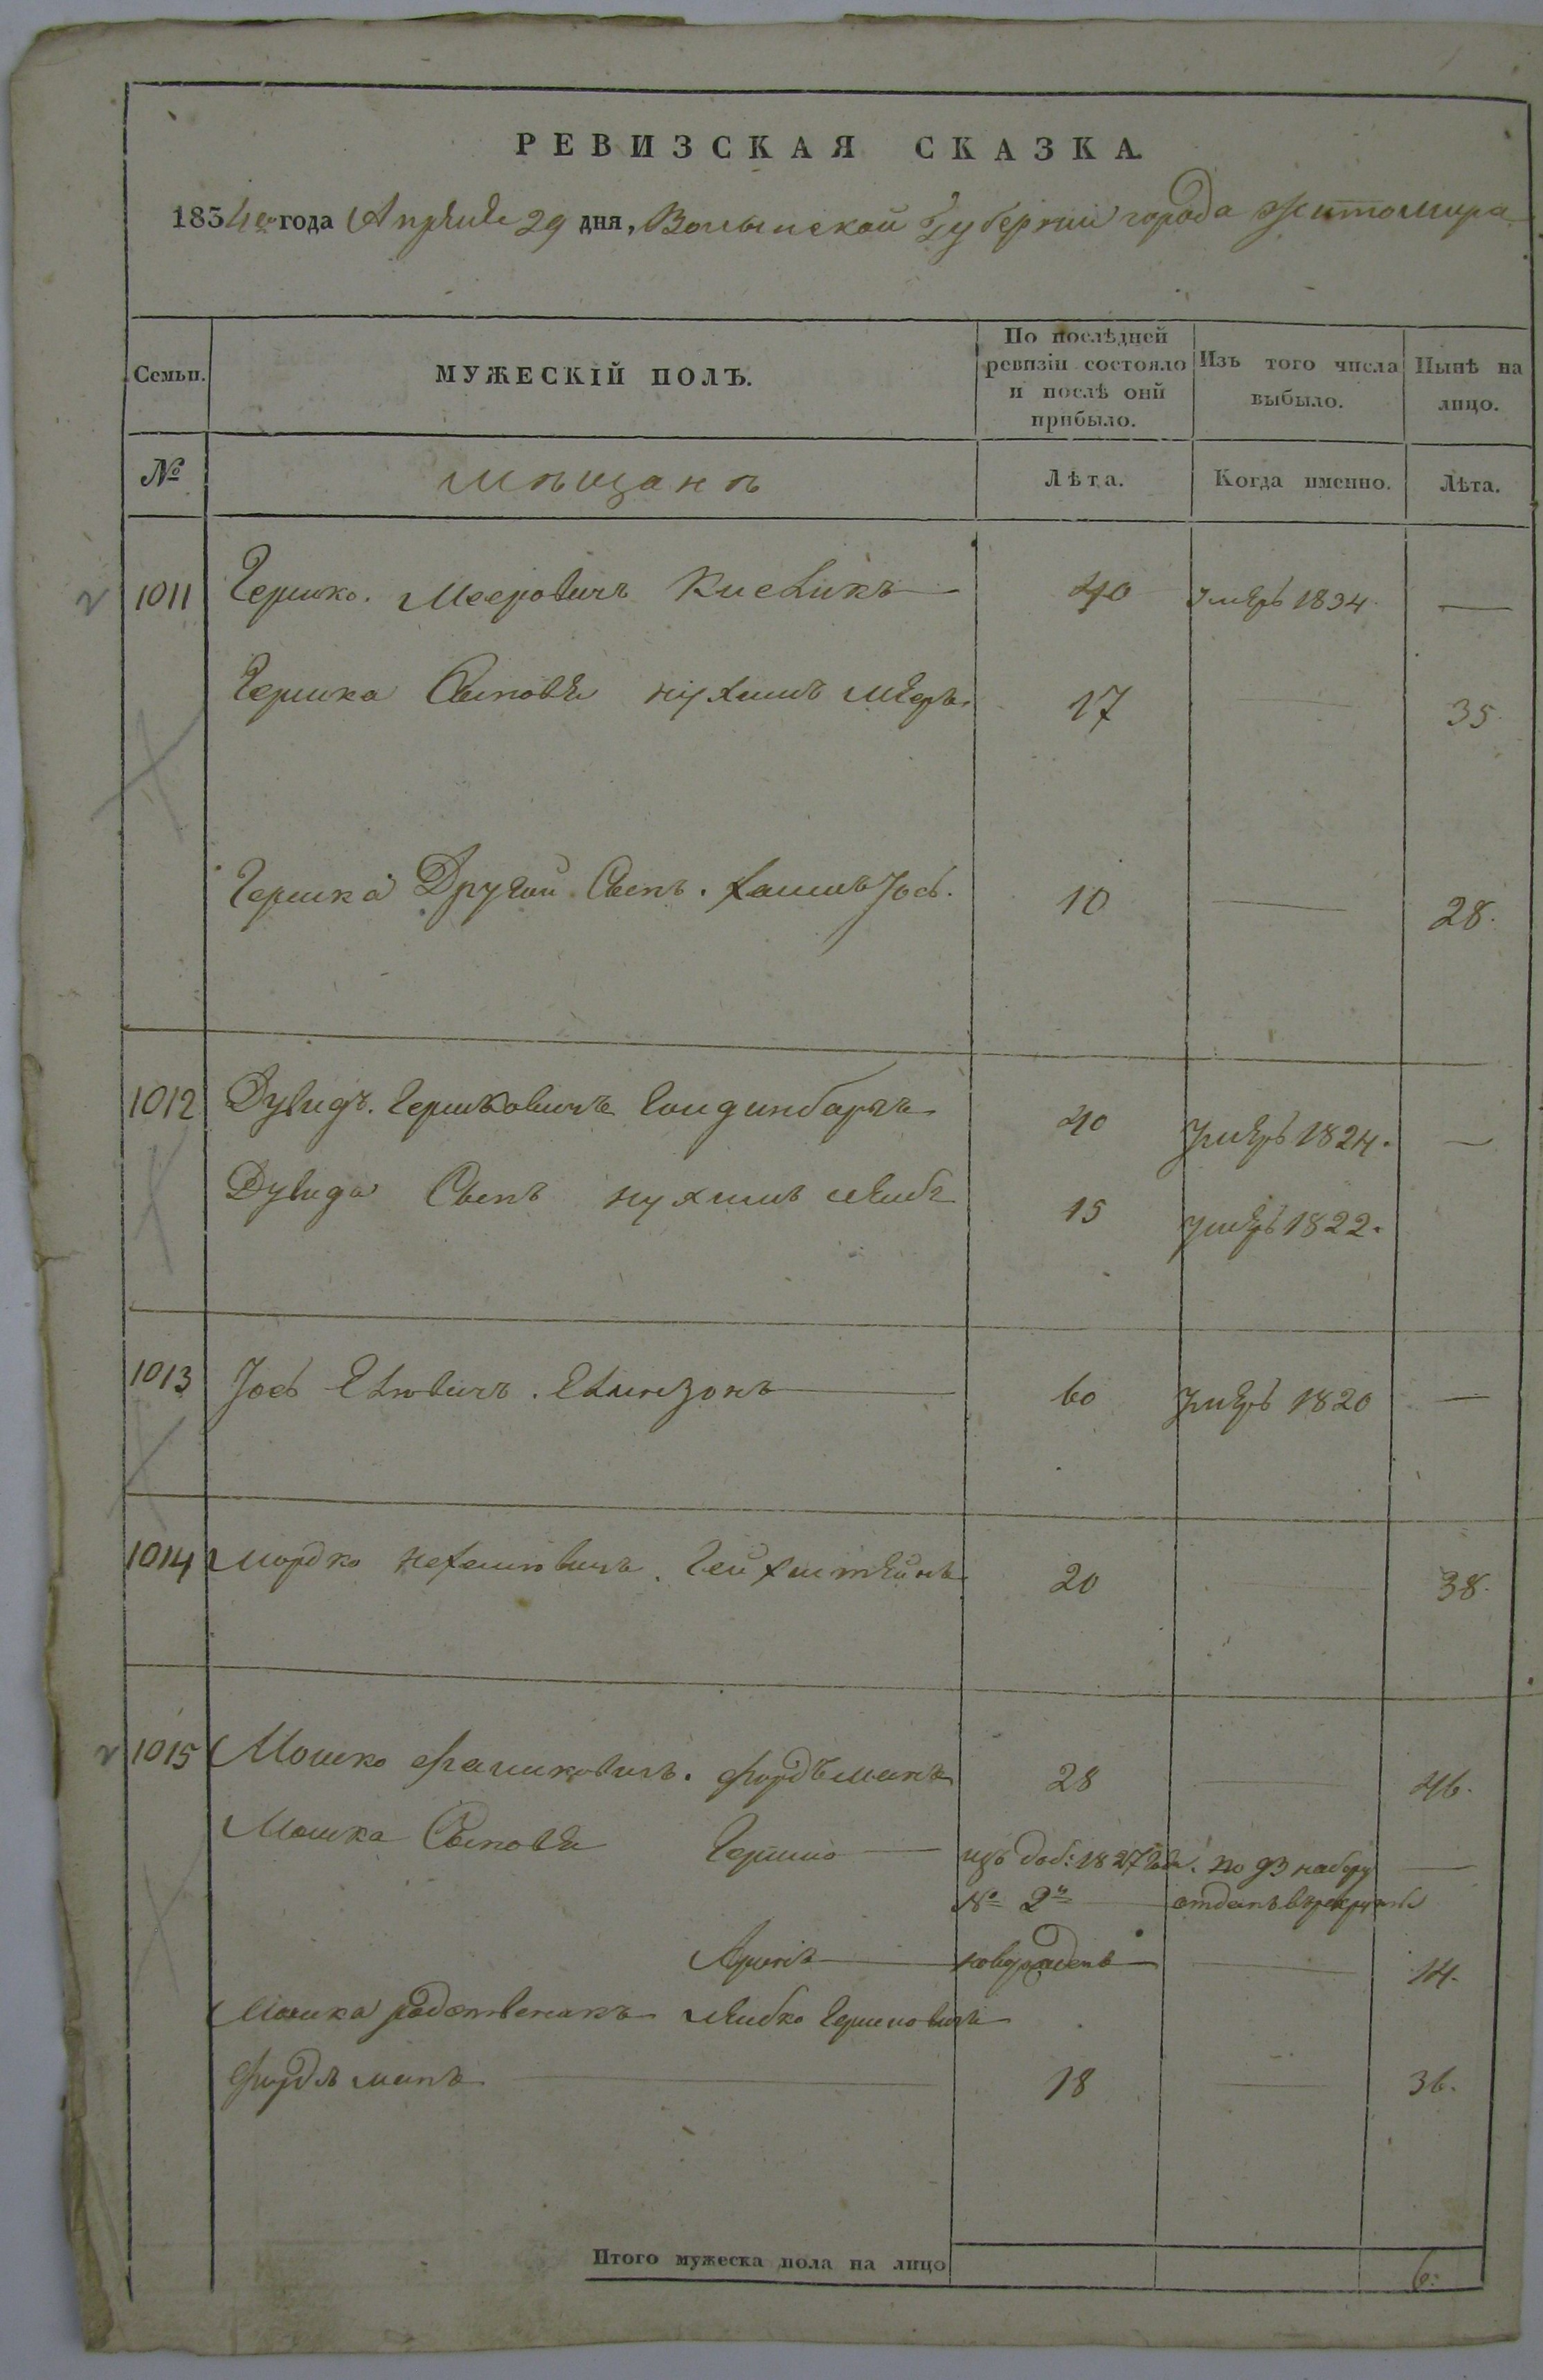 РЕВИЗСКАЯ СКАЗКА.
1834го года Апреля 29 дня, Волынской Губернии города Житомира
Семьи. МУЖЕСКІЙ ПОЛЪ. По послѣдней ревизіи состояло и послѣ оній прибыло. Изъ того числа выбыло. Нынѣ на лицо.
№ мѣщанъ Лѣта. Когда именно. Лѣта.
1011 Гершко. Мееровичъ 40 умеръ 1834. —
Гершка Сыновья Нухимъ Мееръ. 17 — 35.
Гершка Другой Сынъ. Хаимъ Іось. 10 — 28.
1012 Дувидъ. Гершковичъ Голдинбаргъ 40 умеръ 1824. —
Дувида Сынъ Нухимъ Лейбъ 15 умеръ 1822.
1013 Іось 60 умеръ 1820 —
1014 Мордко 20 — 38.
1015 Мошко 28 — 46.
Мошка Сыновья Гершко — 1827 года. по 93 набору —
№ 2й отданъ въ рекруты
— новорожденъ — 14.
Мошка родственикъ Лейбко Гершковичъ
— 18 — 36.
Итого мужеска пола на лицо 6: